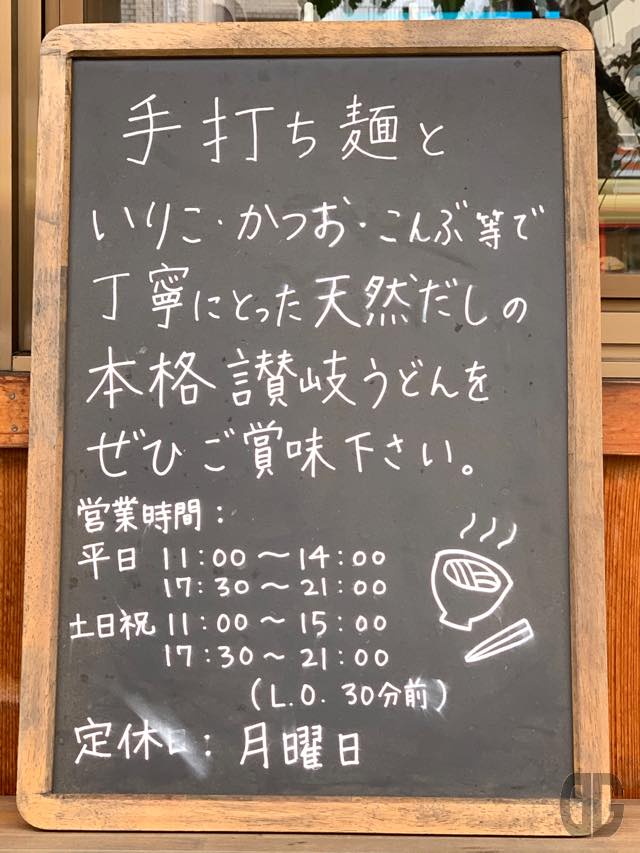 手打ち麺と
いりこ・かつお・こんぶ等で
丁寧にとった天然だしの
本格讃岐うどんを
ぜひご賞味下さい。
営業時間：
平日 11：00～14：00
17：30～21：00
土日祝 11：00～15：00
17：30～21：00
（L.O. 30分前）
定休日：月曜日